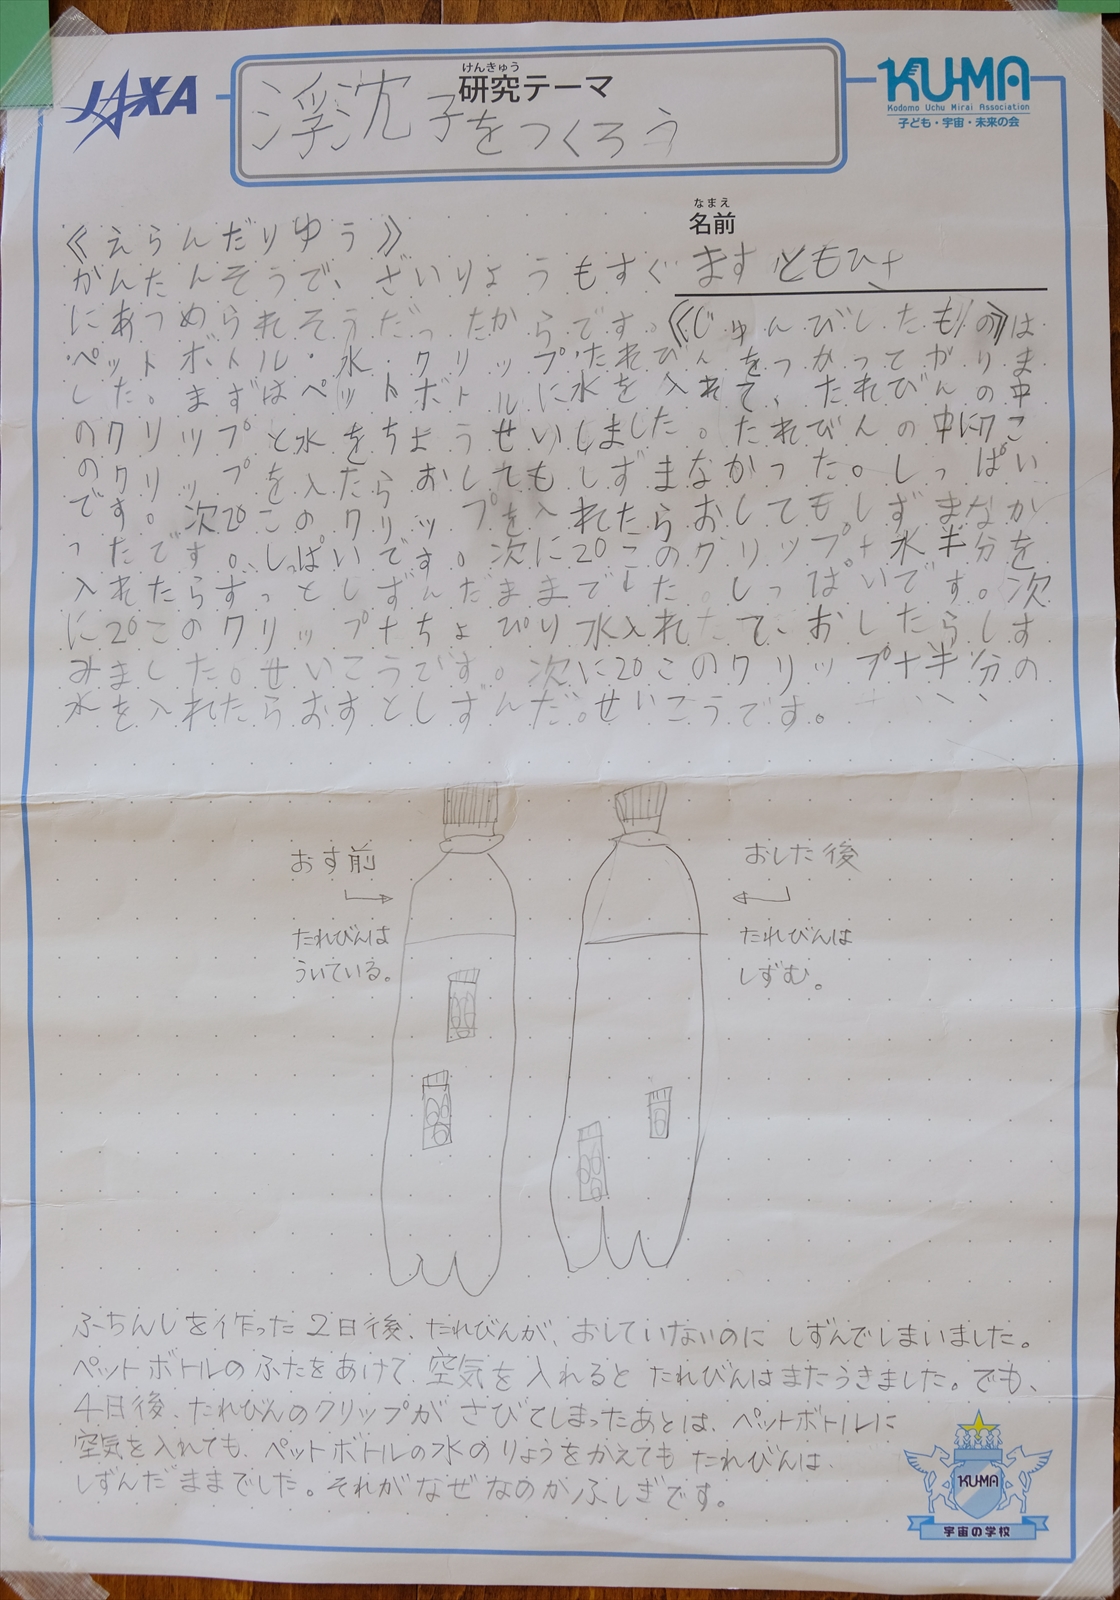 JAXA
けんきゅう
研究テーマ
浮沈子をつくろう
KU-MA
Kodomo Uchu Mirai Association
子ども・宇宙・未来の会
なまえ
名前
ます ともひ
《えらんだりゆう》
かんたんそうで、ざいりょうもすぐ
にあつめられそうだったからです。《じゅんびしたもの》は
ペットボトル・水・クリップ・たれびんをつかってがりま
した。まずはペットボトルに水を入れて、たれびんの中
のクリップと水をちょうせいしました。たれびんの中に7こ
のクリップを入たらおしてもしずまなかった。しっぱい
です。次20このクリップを入れたらおしてもしずまなか
ったです。しっぱいです。次に20このクリップ+水半分を
入れたらずっとしずんだままでした。しっぱいです。次
に20このクリップ+ちょぴり水入れたて、おしたらしす
みました。せいこうです。次に20このクリップ+半分の
水を入れたらおすとしずんだ。せいこうです。
おす前
たれびんは
ういている。
おした後
たれびんは
しずむ。
ふちんしを作った2日後、たれびんが、おしていないのに しずんでしまいました。
ペットボトルのふたをあけて、空気を入れると たれびんはまたうきました。でも、
4日後、たれびんのクリップが さびてしまったあとは、ペットボトルに
空気を入れても、ペットボトルの水のりょうをかえても たれびんは、
しずんだままでした。それがなぜなのかふしぎです。
KU-MA
宇宙の学校